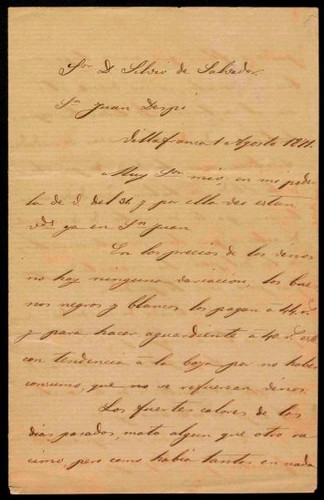 Sor D. Silvio de Salvador.
Sn Juan Despi
Villafranca 1 Agosto 18
Muy Sor mío, en mi pode
la de V. del 31 y por ella veo estan
Vds ya en Sn Juan
En los precios de los vinos
no hay ninguna variacion, los bue
nos negros y blancos los pagan a 44
y para hacer aguardiente a 40
con tendencia á la baja por no haber
consumo, que no se refuerzan vinos.
Los fuertes calores de los
dias pasados, mato algun que otro ra
cimo, pero como habia tantos en nada